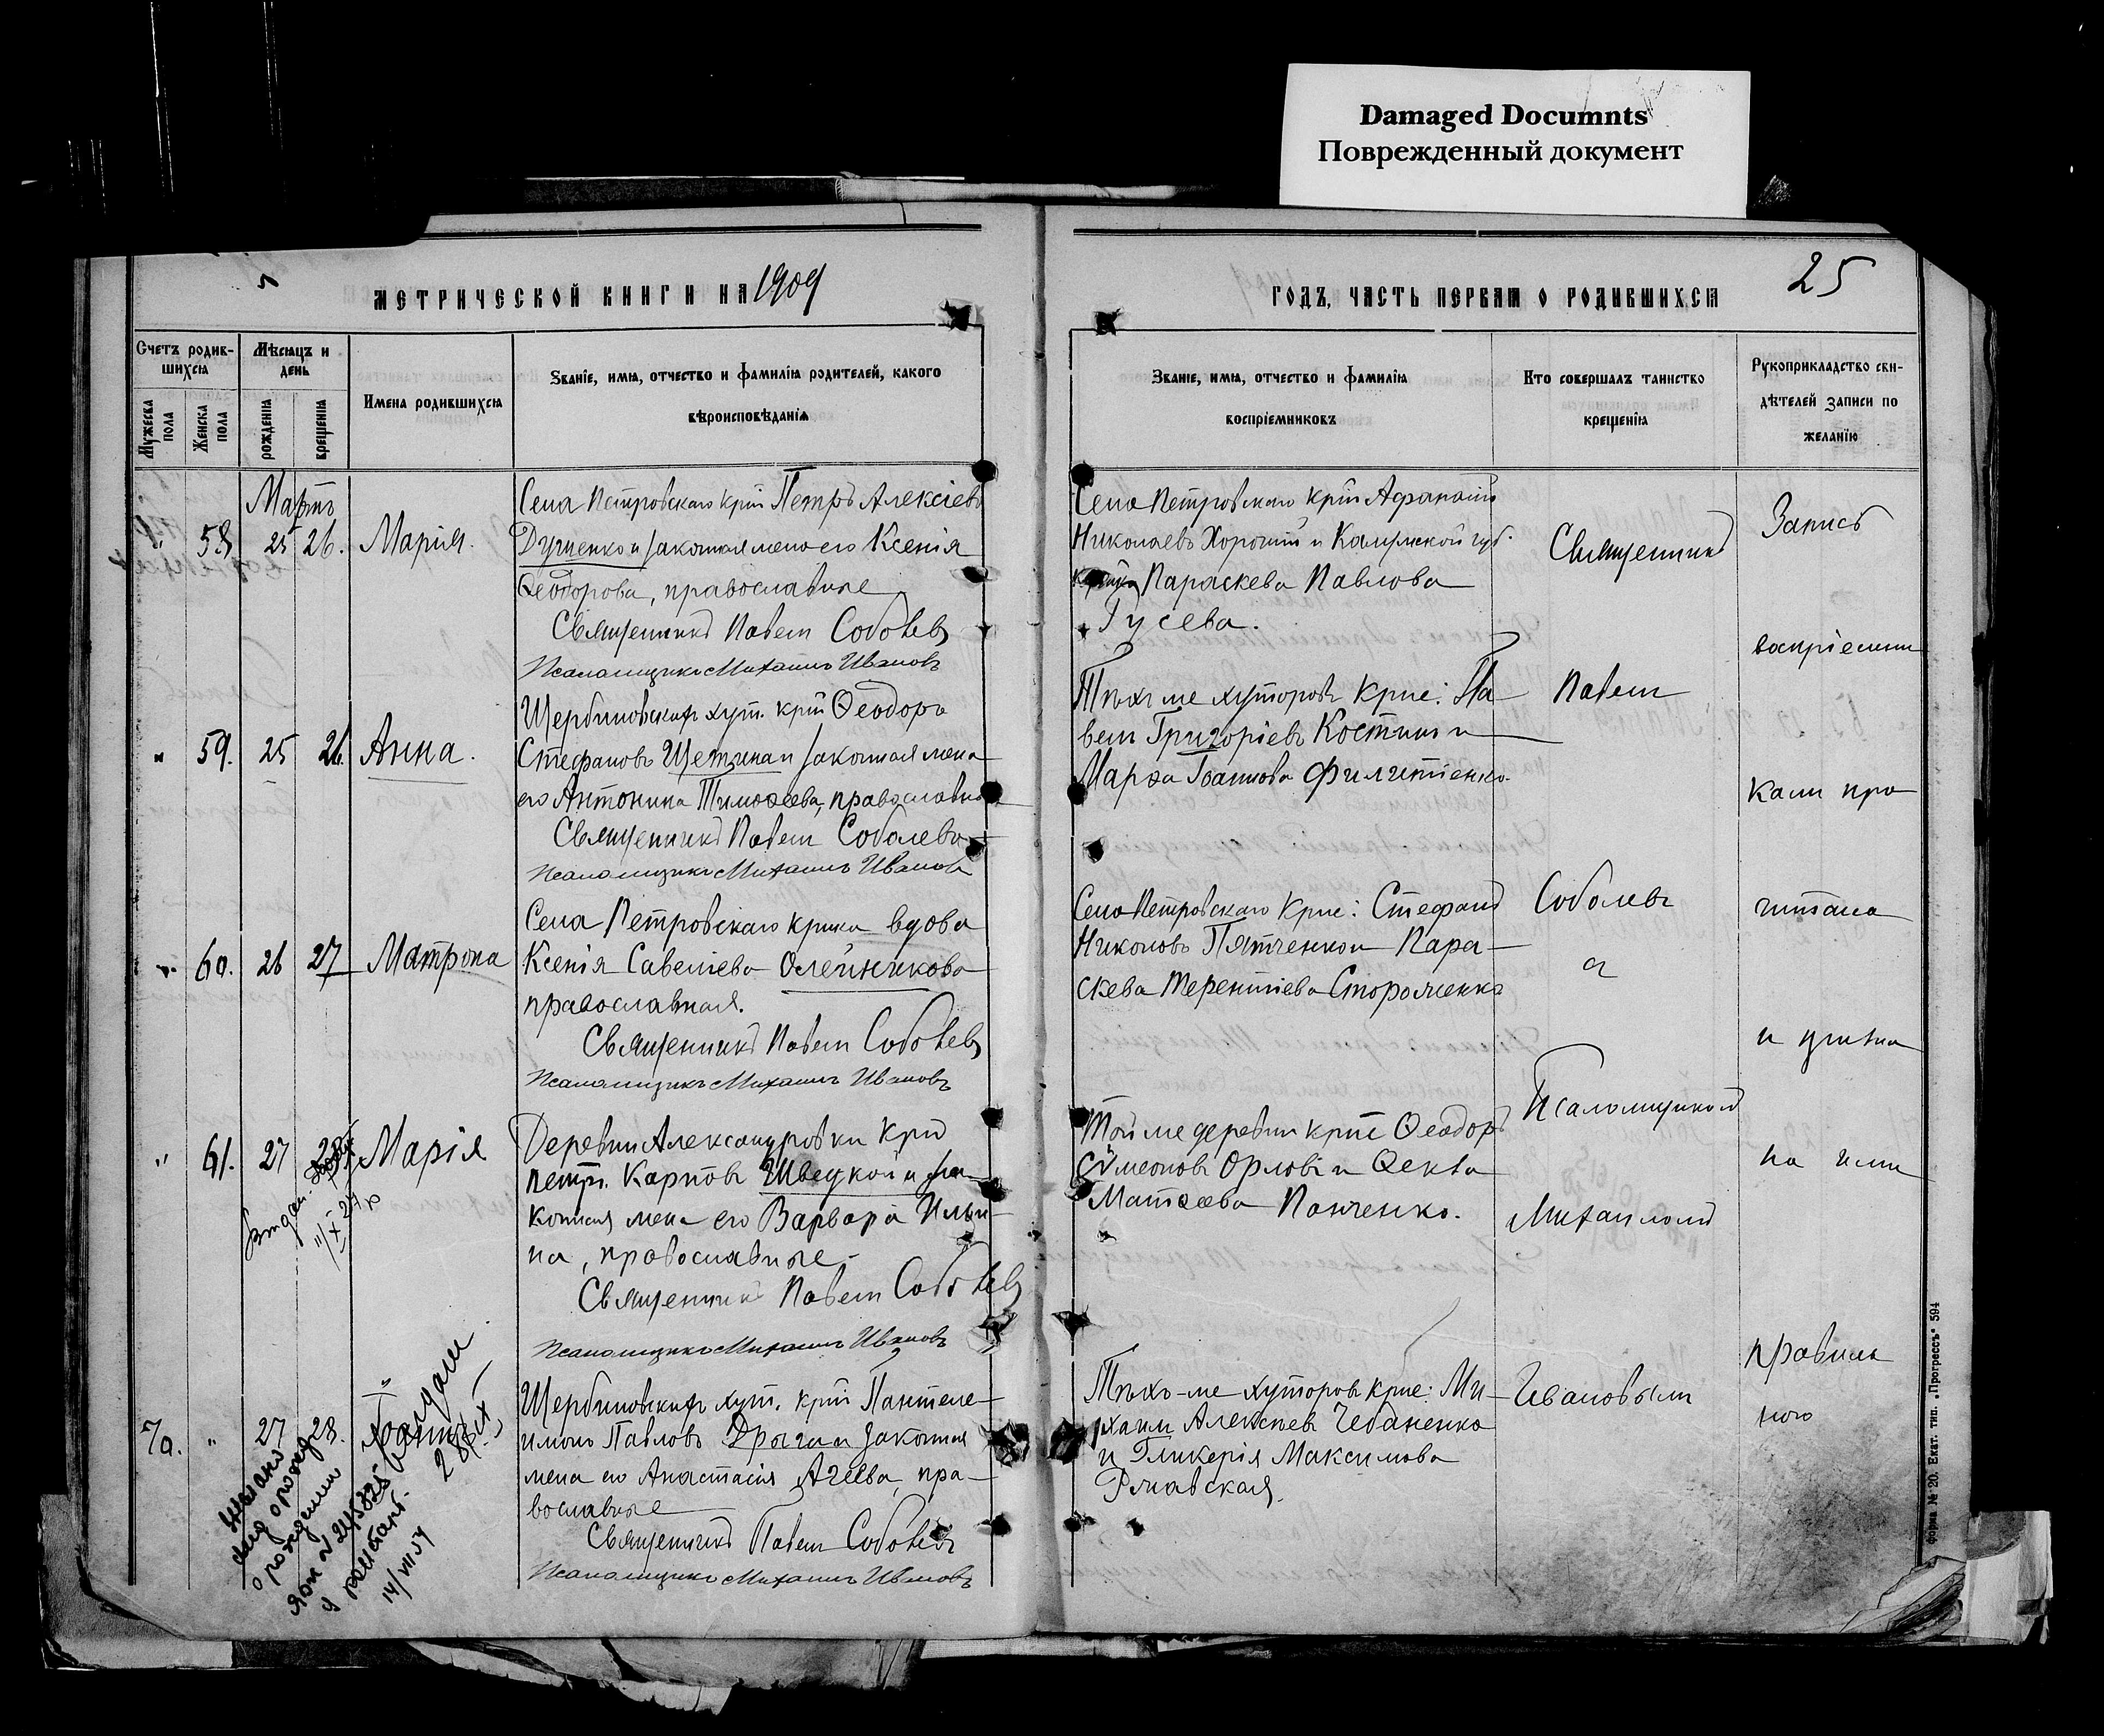 Damaged Documnts
Поврежденный документ
МЕТРИЧЕСКОЙ КНИГИ НА 1909
ГОДЪ, ЧАСТЬ ПЕРВАЯ О РОДИВШИХСЯ
25
Счетъ родив-
шихся
Мужеска пола
Женска пола
Мѣсяцъ и
день
рожденія
крещенія
Имена родившихся
Званіе, имя, отчество и фамилія родителей, какого
вѣроисповѣданія
Званіе, имя, отчество и фамилія
воспріемниковъ
Кто совершалъ таинство
крещенія
Рукоприкладство сви-
дѣтелей записи по
желанію
Мартъ
58 25 26. Марія.
Села Петровскаго крⷭ҇т Петръ Алексіевъ
и законная жена его Ксенія
Ѳеодорова, православные
Священникъ Павелъ Соболевъ
Псаломщикъ Михаилъ Ивановъ
Села Петровскаго крⷭ҇т Афанасій
Николаевъ Хорошій и Калужской губ.
Параскева Павлова
Гусева.
59. 25 26. Анна.
Щербиновскихъ хут. крⷭ҇т Ѳеодоръ
Стефановъ Щетина и законная жена
его Антонина Тимоѳеева, православные
Священникъ Павелъ Соболевъ
Псаломщикъ Михаилъ Ивановъ
Тѣхъ же хуторовъ крне: Па-
велъ Григоріевъ Костинъ и
Марѳа Іоаннова
60. 26 27 Матрона
Села Петровскаго крнка вдова
Ксенія Савеліева Олейникова
православная.
Священникъ Павелъ Соболевъ
Псаломщикъ Михаилъ Ивановъ
Села Петровскаго крне: Стефанъ
Никоновъ Пятченко и Пара-
скева Терентіева Стороженко
61. 27 28 Марія
Деревни Александровки крⷭ҇т
петръ Карповъ Швецкой и за-
конная жена его Варвара Ильи-
на, православные
Священникъ Павелъ Соболевъ
Псаломщикъ Михаилъ Ивановъ
Той же деревни крне Ѳеодоръ
Сѵмеоновъ Орловъ и Ѳекла
Матѳеева Панченко.
70. 27 28.
Щербиновскихъ хут. крⷭ҇т Пантеле-
имонъ Павловъ Драган законная
жена его Анастасія Агеева, пра-
вославные
Священникъ Павелъ Соболевъ
Псаломщикъ Михаилъ Ивановъ
Тѣхъ-же хуторовъ крне: Ми-
хаилъ Алексѣевъ Чебаненко
и Гликерія Максимова
Ржавская.
Священникъ
Павелъ
Соболевъ
с
Псаломщикомъ
Михаиломъ
Ивановымъ
Запись
воспріемни
ками про
читана
и
на ими
правиль
ною
форма № 20. Екат. тип. „Прогрессъ“ 594